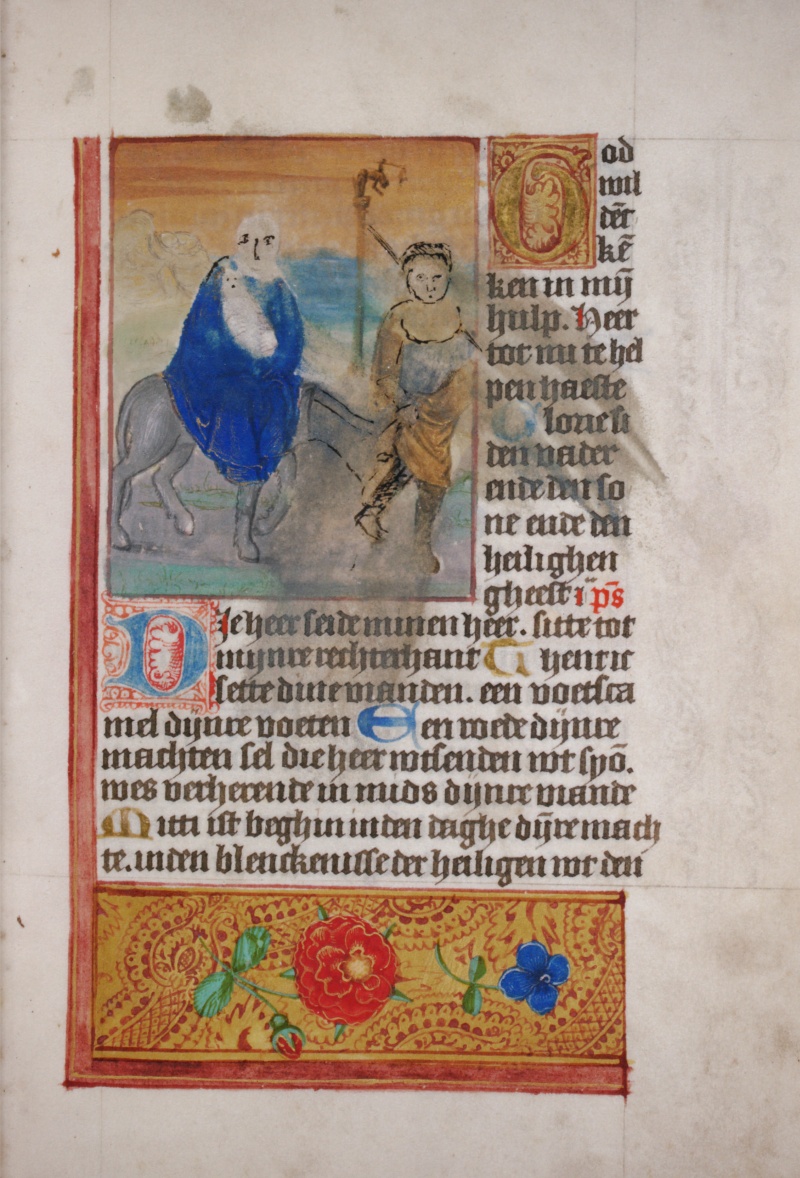 God
wil
dēc
kē
ken in mij
hulp. Heer
tot mi te hel
pen haeste
Glorie si
den vader
ende den so
ne ende den
heilighen
gheest ps̄
Die heer seide minen heer. sitte tot
mijnre rechterhant Thent ic
sette dine vianden. een voetsca
mel dijnre voeten Een roede dijnre
machten sel die heer wtsenden wt syō.
wes verherende in mids dijnre viande
Mitti ist beghin inden daghe dīre mach
te. inden blenckenisse der heiligen wt den